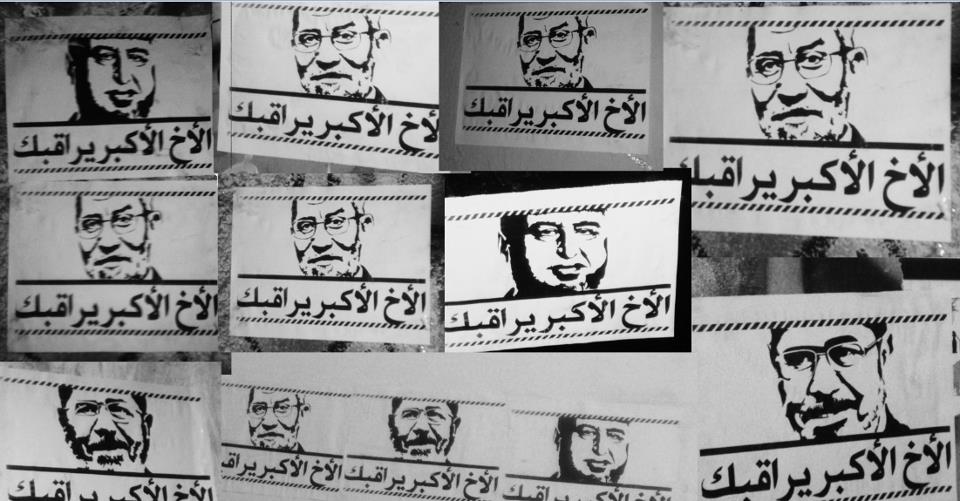 الأخ الأكبر يراقبك
الأخ الأكبر يراقبك
الأخ الأكبر يراقبك
الأخ الأكبر يراقبك
الأخ الأكبر يراقبك
الأخ الأكبر يراقبك
الأخ الأكبر يراقبك
الأخ الأكبر يراقبك
الأخ الأكبر يراقبك
الأخ الأكبر يراقبك
الأخ الأكبر يراقبك
الأخ الأكبر يراقبك